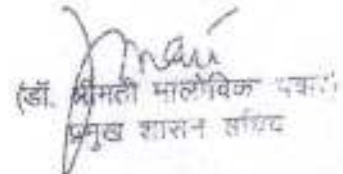 (डॉ. श्रीमती मालोविक
प्रमुख शासन सचिव